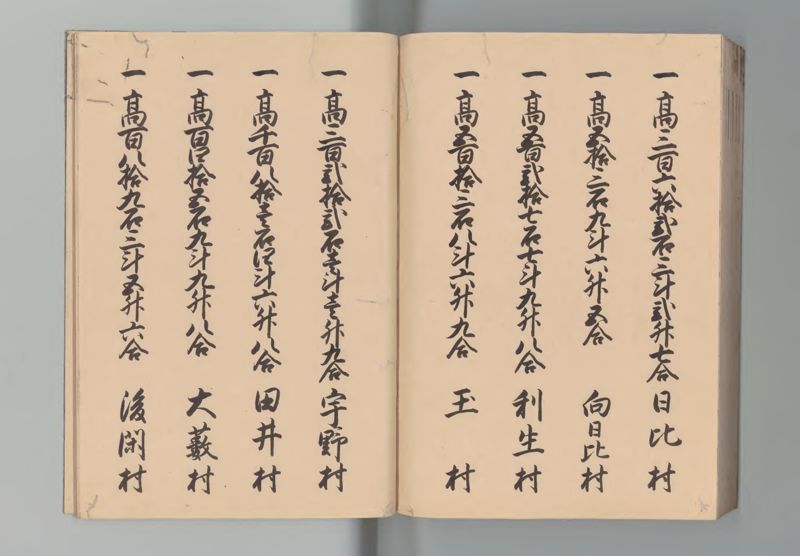 一高三百六拾弐石三斗弐升七合 日比村
一高五拾三石九斗六升五合 向日比村
一高五百弐拾七石七斗九升八合 利生村
一高五百拾三石八斗六升九合 玉村
一高三百弐拾弐石壱斗壱升九合 宇野村
一高千百八拾壱石四斗六升八合 田井村
一高百四拾五石九斗九升八合 大藪村
一高百八拾九石三斗五升六合 後閑村